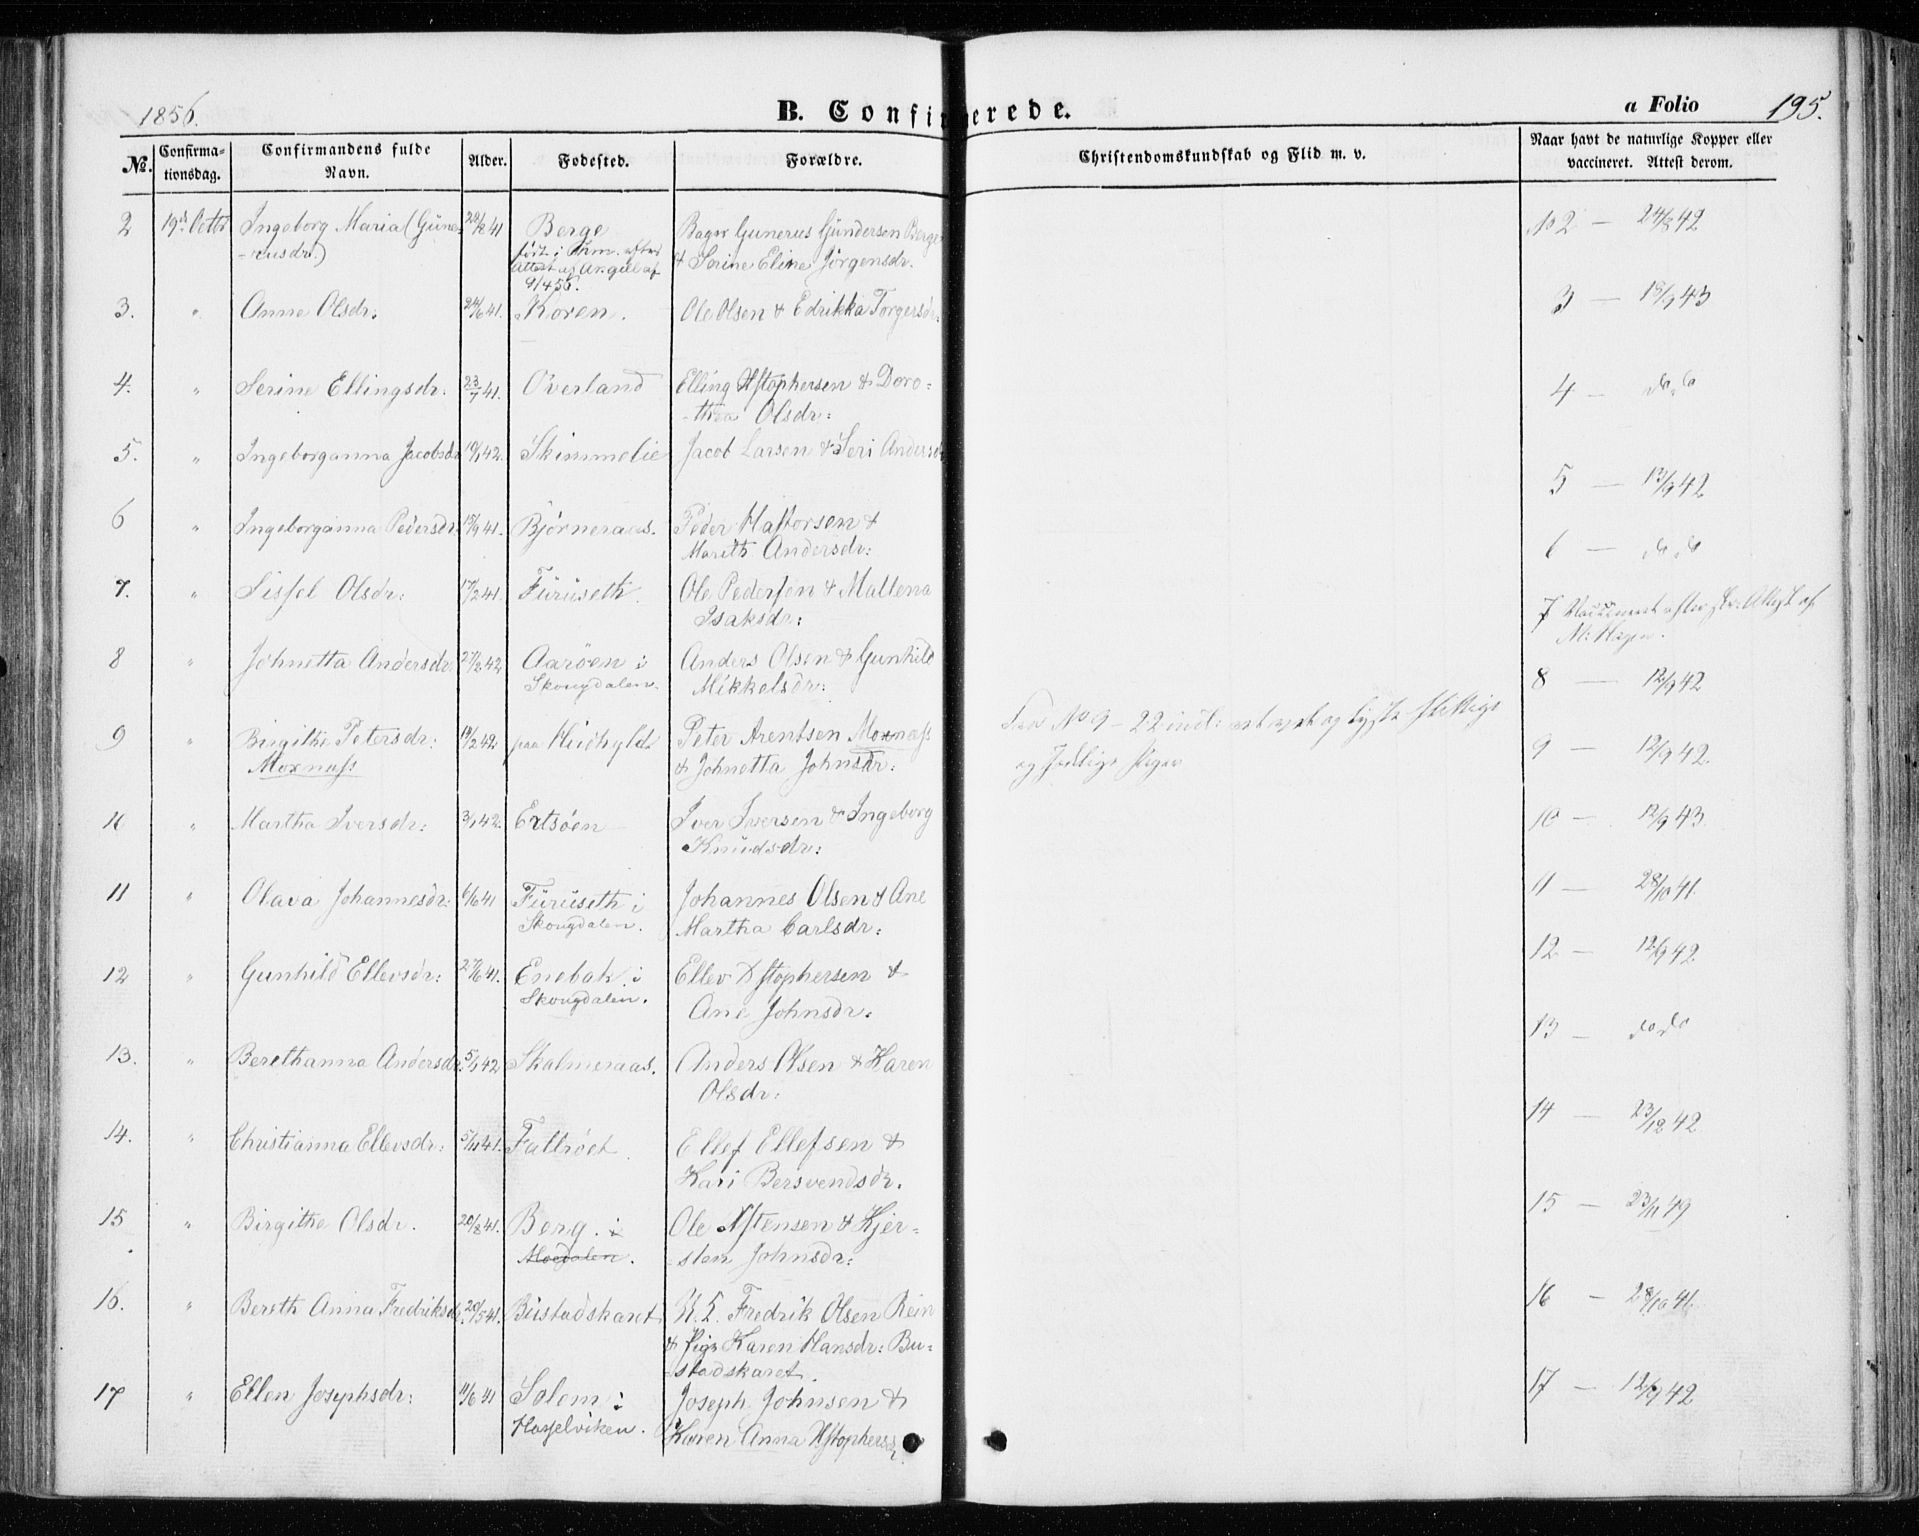 1856.
B. Confirmerede.
a Folio 195.
No. Confirma- Confirmandens fulde Alder. Fodested. Forældre. Christendomskundskab og Flid m. v. Naar havt de naturlige Kopper eller
tionsdag. Navn. vaccineret. Attest derom.
2 19de Octbr Ingeborg Maria (Gune- 41 Berge Bager Gunerus Gundersen Berge No 2 — 24/8 42
-rusdr.) født i Thm. efter & Serine Eline Jörgensdr.
Attest af
9/4 56.
3. " Anne Olsdr. 24/6 41. Koren. Ole Olsen & Edrikka Torgersdr: 3 — 18/9 43
4. " Serine Ellingsdr: 23/7 41. Overland Elling Xstophersen & Doro= 4 — do do
-thea Olsdr:
5. " Ingeborganna Jacobsdr 10/1 42. Skimmelie Jacob Larsen & Seri Andersdr 5 — 13/9 42
6 " Ingeborganna Pedersdr 15/9 41. Björneraas. Peder Hastorsen & 6 — do do
Marith Andersdr:
7. " Sissel Olsdr: 17/2 41. Furuseth. Ole Pedersen & Maltena 7 Vaccineret efter Attest af
Isaksdr: M. Hagen.
8 " Johnetta Andersdr 27/2 42 Aaröen i Anders Olsen & Gunhild 8 — 12/9 42
Skougdalen. Mikkelsdr:
9 " Birgithe Petersdr: 19/2 42 paa Hiidhylds Peter Arentsen Moxness For No 9 - 22 indl: og 9 — 12/9 42.
Moxness & Johnetta Johnsdr: og Piger
10 " Martha Iversdr: 3/1 42. Ertsöen Iver Iversen & Ingeborg 10 — 12/9 43.
Knudsdr:
11 " Olava Johannesdr: 6/6 41 Furuseth i Johannes Olsen & Ane 11 — 28/10 41.
Skougdalen. Martha Carlsdr:
12 " Gunhild Ellevsdr: 27/6 41. Enebak i Ellev Xstophersen & 12 — 12/9 42.
Skougdalen. Ane Johnsdr:
13. " Berethanna Andersdr. 5/1 42 Skalmeraas. Anders Olsen & Karen 13 — do do
Olsdr:
14. " Christianna Ellevsdr: 5/11 41. Fallröet. Ellef Ellefsen & 14 — 23/12 42
Kari Bersvendsdr.
15 " Birgithe Olsdr. 20/8 41. Berg i Ole Xstensen & Kjer- 15 — 23/11 49
Moedalen. -sten Johnsdr:
16. " Bereth Anna Fredriksdr. 20/5 41. Bustadskaret U. K. Fredrik Olsen Rein 16 — 28/10 41.
& Pige Karen Hansdr: Bu-
stadskaret.
17 " Ellen Josephsdr: 11/6 41 Solem i Joseph Johnsen & 17 — 12/9 42
Hasselviken. Karen Anna Xstophersdr.